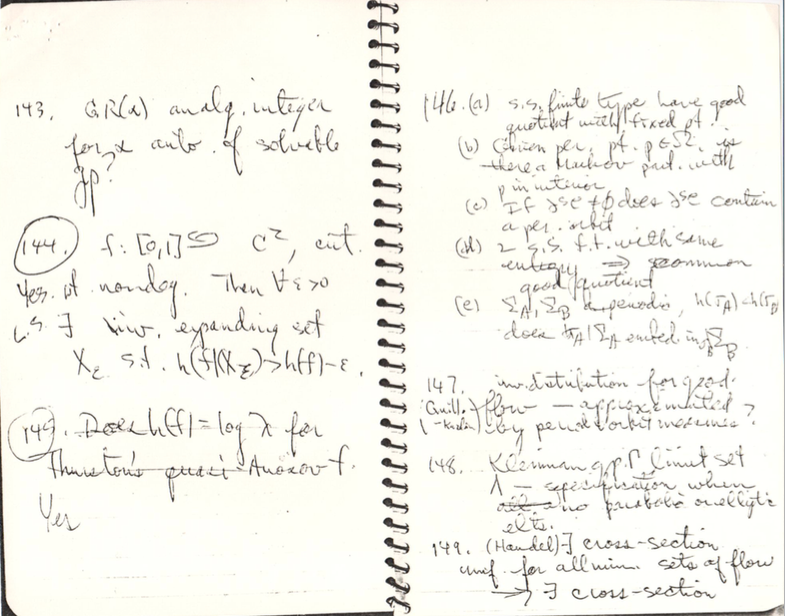 143. GR(α) analg. integer
for α auto. of solvable
gp?
144. f: [0,1]↺ C², crit.
Yes. pt nondeg. Then ∀ε>0
∃ inv. expanding set
X_ε s.t. h(f|X_ε)>h(f)-ε.
145. Does h(f) = log λ for
Thurston's quasi Anosov f.
Yes
146. (a) s.s. finite type have good
quotient with fixed pt.
(b) Given per. pt. p∈Ω, is
there a Markov part. with
p in interior
(c) If ∂se ≠ φ does ∂se contain
a per. orbit
(d) 2 s.s. f.t. with same
entropy ⇒ common
good quotient
(e) Σ_A, Σ_B aperiodic, h(σ_A)<h(σ_B)
does σ_A|Σ_A embed in σ_B|Σ_B
147. inv. distribution for geod.
(Guill. flow — approximated
-Kazdan) by period orbit measures?
148. Kleinian gp. Γ, limit set
Λ — specification when
no parabolic or elliptic
elts.
149. (Handel) ∃ cross-section
unif. for all min. sets of flow
→ ∃ cross-section